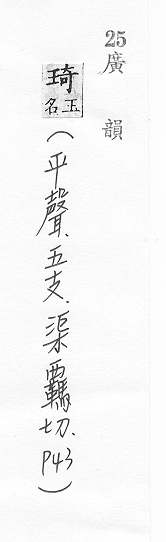 25廣韻
琦玉名(平聲.五支.渠覊切.P43)